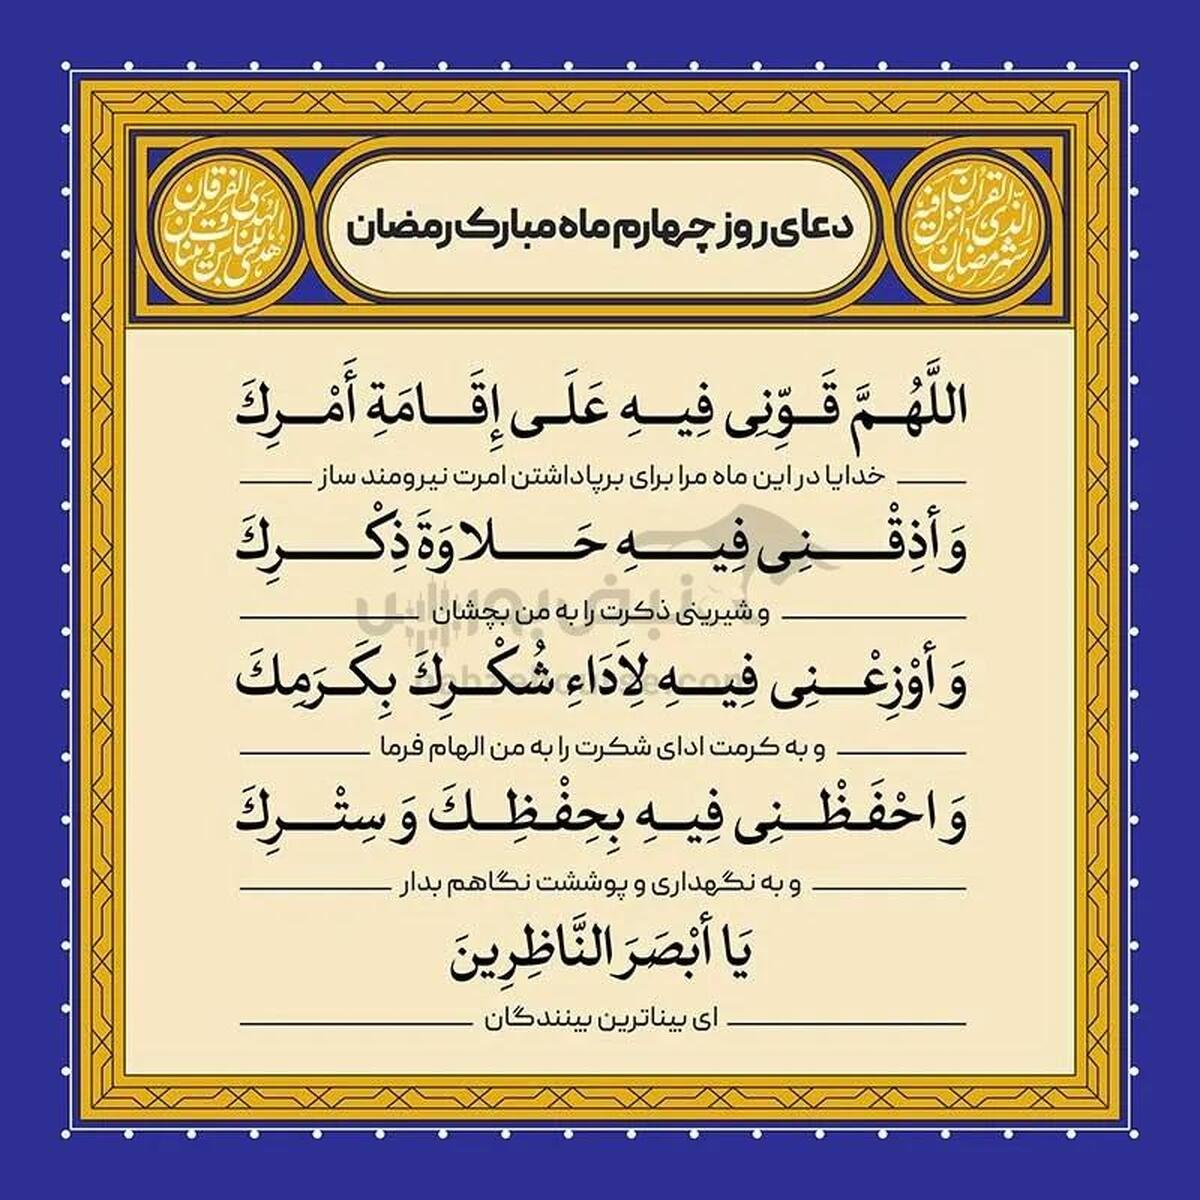 شهر رمضان الذی انزل فیه القرآن
هدی للناس و بینات من الهدی و الفرقان
دعای روز چهارم ماه مبارک رمضان
اللَّهُمَّ قَوِّنِی فِیهِ عَلَی إِقَامَةِ أَمْرِكَ
خدایا در این ماه مرا برای برپاداشتن امرت نیرومند ساز
وَ أَذِقْنِی فِیهِ حَلاوَةَ ذِکْرِكَ
و شیرینی ذکرت را به من بچشان
نبض بورس
nabzebourse.com
وَ أَوْزِعْنِی فِیهِ لِاَدَاءِ شُکْرِكَ بِکَرَمِكَ
و به کرمت ادای شکرت را به من الهام فرما
وَ احْفَظْنِی فِیهِ بِحِفْظِكَ وَ سِتْرِكَ
و به نگهداری و پوششت نگاهم بدار
یَا أَبْصَرَ النَّاظِرِینَ
ای بیناترین بینندگان